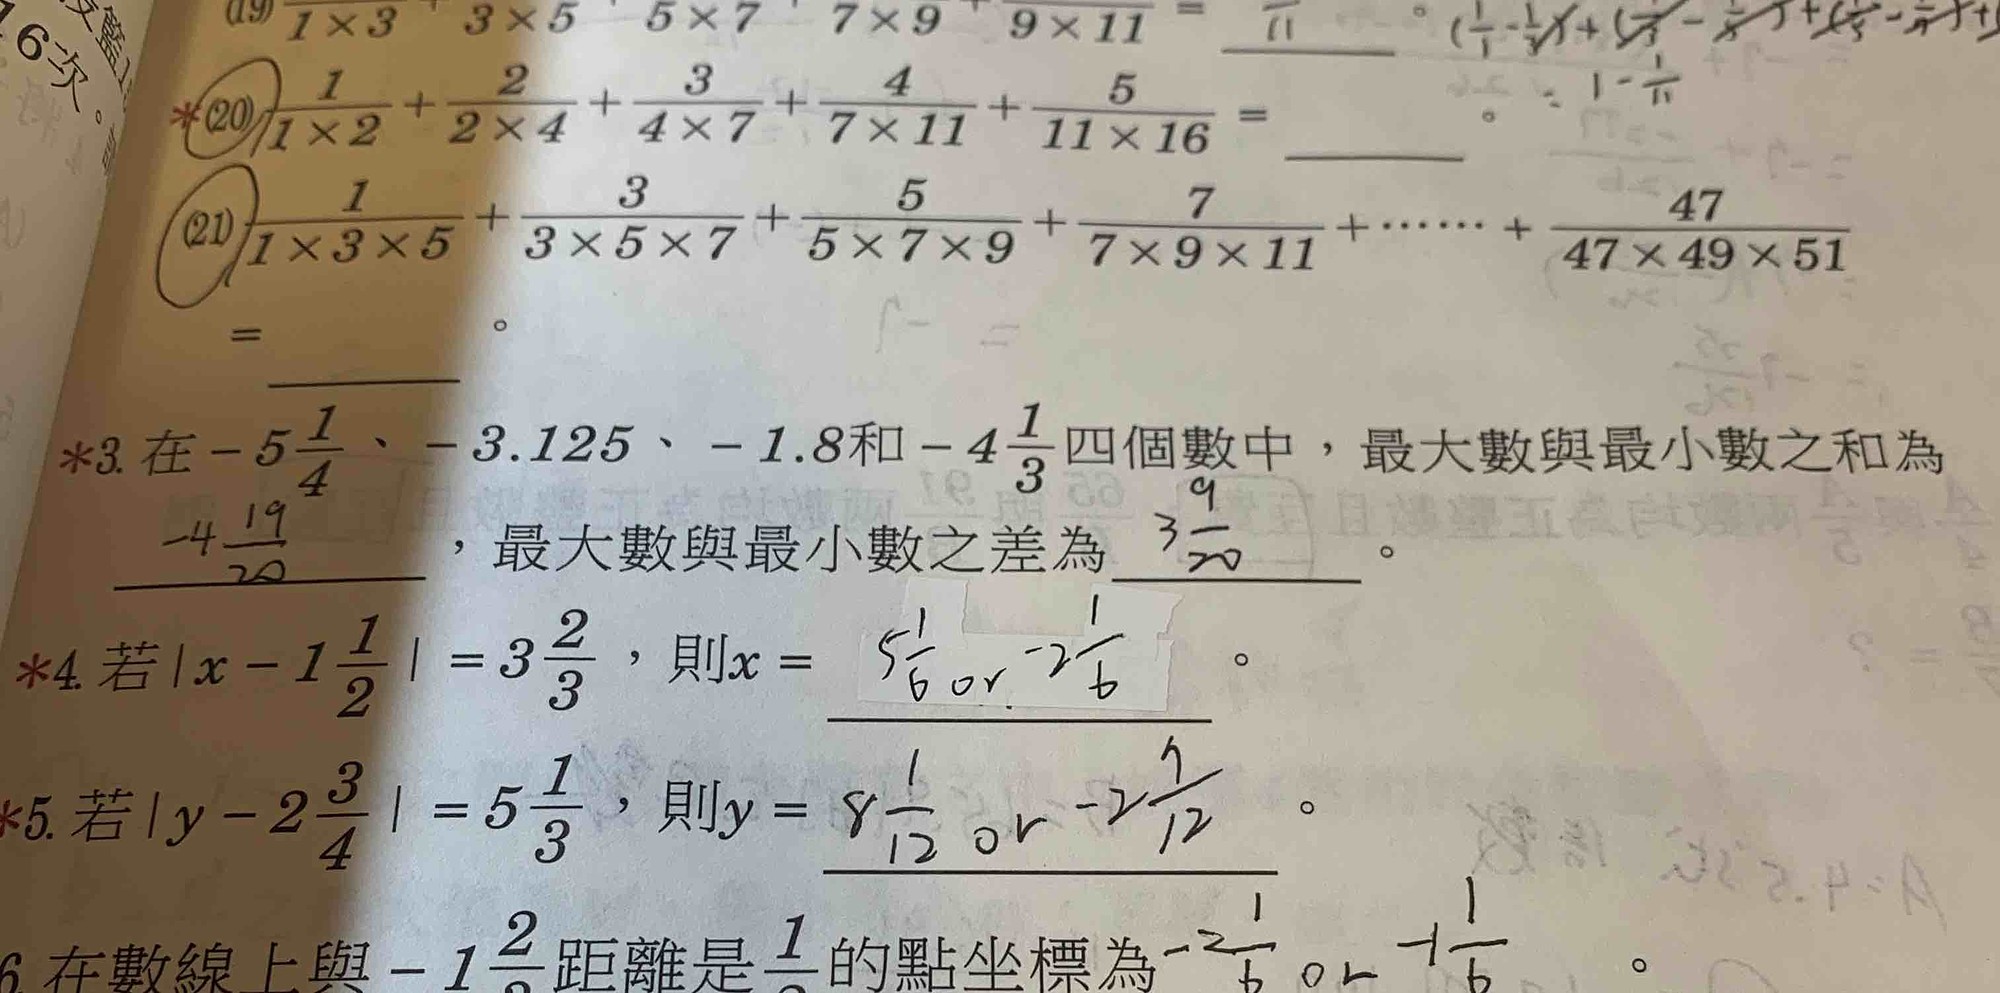 6次。
(19) 1×3 + 3×5 + 5×7 + 7×9 + 9×11 = 11 。
1 - 1/11
*(20) 1/(1×2) + 2/(2×4) + 3/(4×7) + 4/(7×11) + 5/(11×16) = ______ 。
(21) 1/(1×3×5) + 3/(3×5×7) + 5/(5×7×9) + 7/(7×9×11) + …… + 47/(47×49×51)
= ______ 。
*3. 在 -5 1/4 、 -3.125 、 -1.8 和 -4 1/3 四個數中，最大數與最小數之和為
-4 19/20 ，最大數與最小數之差為 3 9/20 。
*4. 若 |x - 1 1/2| = 3 2/3 ，則 x = 5 1/6 or -2 1/6 。
*5. 若 |y - 2 3/4| = 5 1/3 ，則 y = 8 1/12 or -2 7/12 。
6. 在數線上與 -1 2 距離是 1 的點坐標為 -2 1/6 or -1 1/6 。